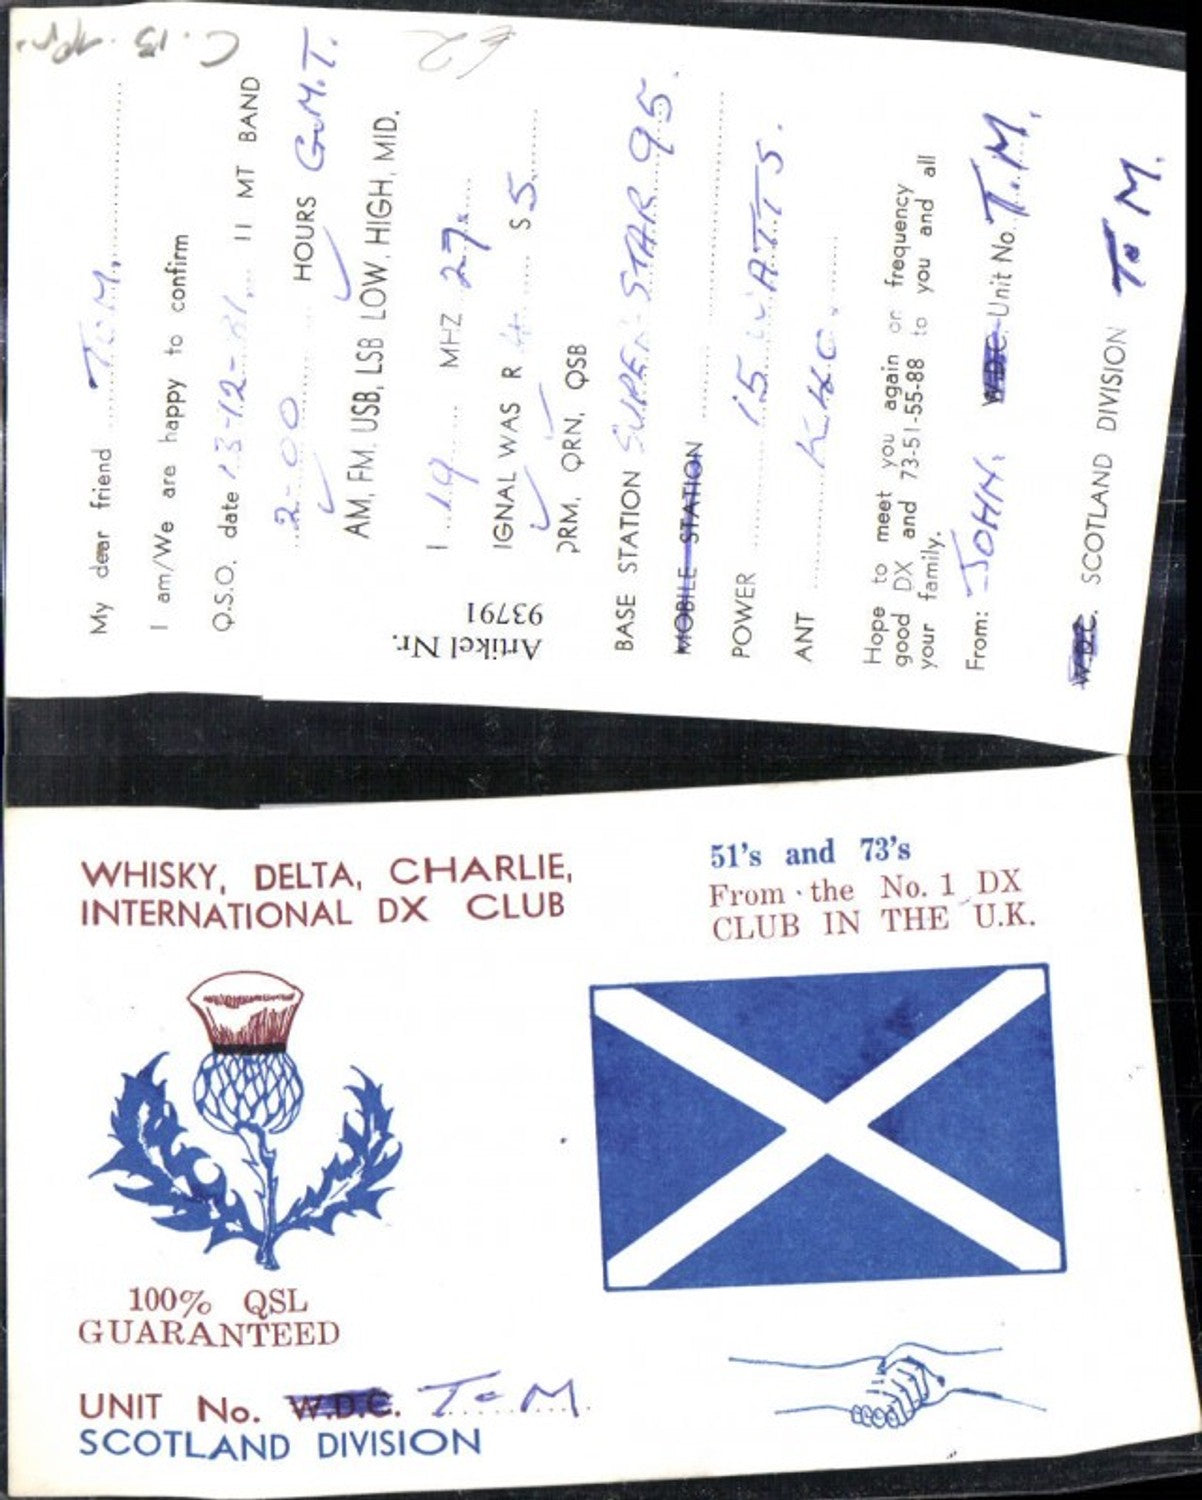 My dear friend TOM.
I am/We are happy to confirm
Q.S.O. date 13-12-81. 11 MT BAND
2-00 HOURS G.M.T.
AM, FM, USB, LSB LOW, HIGH, MID.
1 19 MHZ 27.
IGNAL WAS R 4 S 5
QRM, QRN, QSB
BASE STATION SUPER STAR 95.
MOBILE STATION
POWER 15 WATTS.
ANT
Hope to meet you again on frequency
good DX and 73-51-55-88 to you and all
your family.
From: JOHN. W.D.C. Unit No. T.M.
W.D.C. SCOTLAND DIVISION T.M.
Artikel Nr.
93791
£2
WHISKY, DELTA, CHARLIE,
INTERNATIONAL DX CLUB
51's and 73's
From the No. 1 DX
CLUB IN THE U.K.
100% QSL
GUARANTEED
UNIT No. W.D.C. T-M
SCOTLAND DIVISION